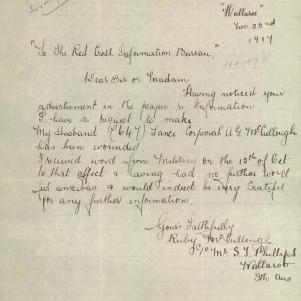 "Wallaroo"
Nov 22nd
1917
"To The Red Cross Information Bureau"
Dear Sir or Madam
Having noticed your
advertisment in the paper re Information
I have a request to make
My Husband (647) Lance Corporal A G McCullough
has been wounded
I received word from Military on the 12th of Oct
to that effect & having had no further word
am anxious & would indeed be very Grateful
for any further information
Yours Faithfully
Ruby McCullough
C/o Mr S. J. Phillips
Wallaroo
Sth Aus